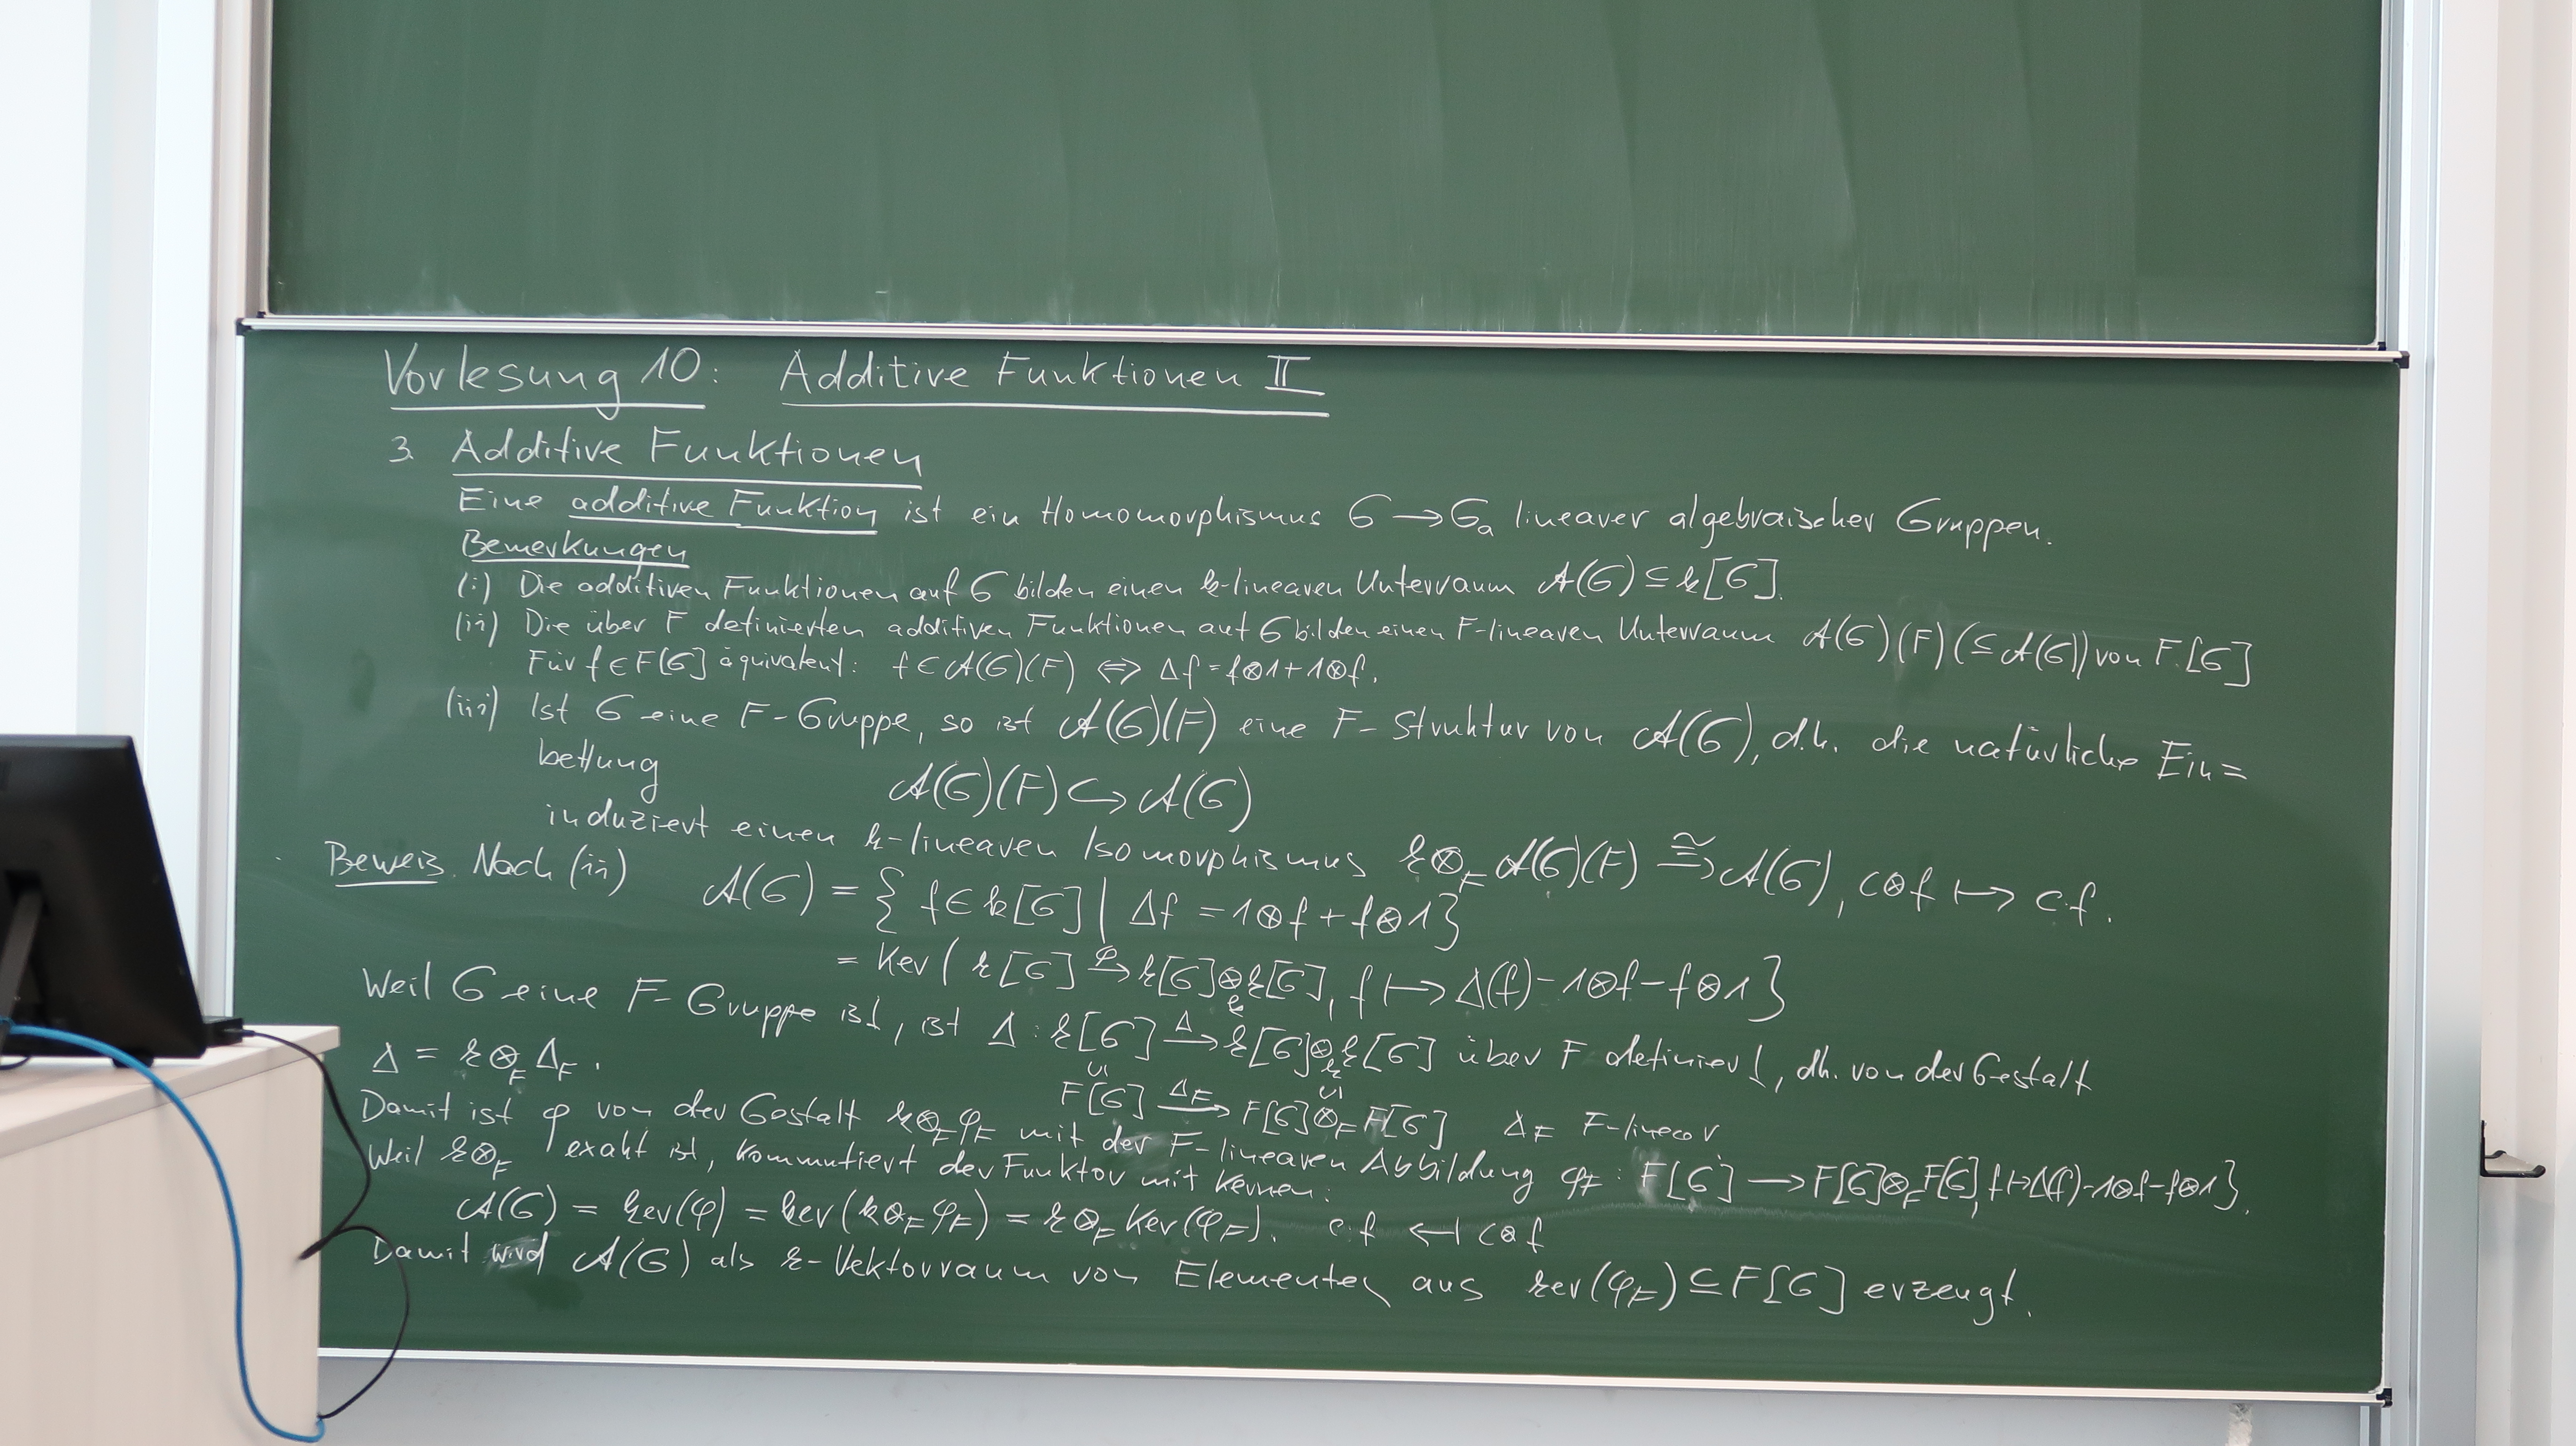 Vorlesung 10: Additive Funktionen II
3. Additive Funktionen
Eine additive Funktion ist ein Homomorphismus G → Gₐ linearer algebraischer Gruppen.
Bemerkungen
(i) Die additiven Funktionen auf G bilden einen k-linearen Unterraum A(G) ⊆ k[G].
(ii) Die über F definierten additiven Funktionen auf G bilden einen F-linearen Unterraum A(G)(F) (⊆ A(G)) von F[G]
Für f ∈ F[G] äquivalent: f ∈ A(G)(F) ⇔ Δf = f⊗1+1⊗f.
(iii) Ist G eine F-Gruppe, so ist A(G)(F) eine F-Struktur von A(G), d.h. die natürliche Ein=
bettung
A(G)(F) ↪ A(G)
induziert einen k-linearen Isomorphismus k⊗_F A(G)(F) ≅→ A(G), c⊗f ↦ c·f.
Beweis. Nach (ii) A(G) = { f ∈ k[G] | Δf = 1⊗f + f⊗1}
= Ker( k[G] φ→ k[G]⊗_k k[G], f ↦ Δ(f)-1⊗f-f⊗1}
Weil G eine F-Gruppe ist, ist Δ: k[G] Δ→ k[G]⊗_k k[G] über F definiert, dh. von der Gestalt
Δ = k⊗_F Δ_F.
∪| ∪|
F[G] Δ_F→ F[G]⊗_F F[G] Δ_F F-linear
Damit ist φ von der Gestalt k⊗_F φ_F mit der F-linearen Abbildung φ_F: F[G] → F[G]⊗_F F[G], f↦Δ(f)-1⊗f-f⊗1}.
Weil k⊗_F exakt ist, kommutiert der Funktor mit Kernen:
A(G) = ker(φ) = ker(k⊗_F φ_F) = k⊗_F Ker(φ_F). c·f ↤ c⊗f
Damit wird A(G) als k-Vektorraum von Elementen aus ker(φ_F) ⊆ F[G] erzeugt.